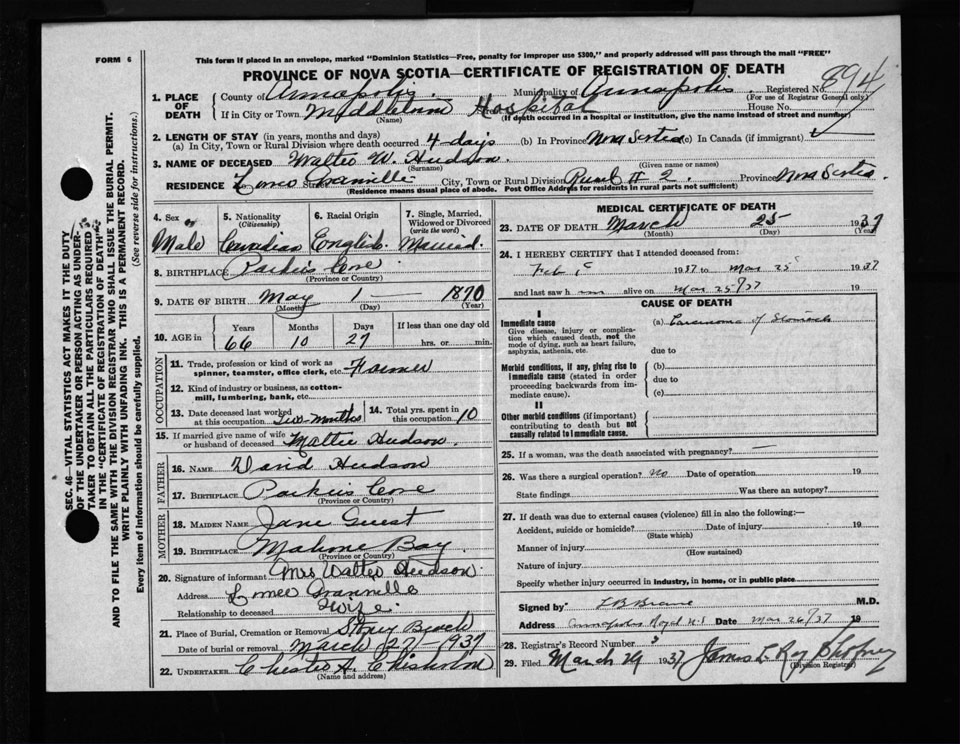 FORM 6
This form if placed in an envelope, marked "Dominion Statistics—Free, penalty for improper use $300," and properly addressed will pass through the mail "FREE"
PROVINCE OF NOVA SCOTIA—CERTIFICATE OF REGISTRATION OF DEATH
894
SEC. 46—VITAL STATISTICS ACT MAKES IT THE DUTY
OF THE UNDERTAKER OR PERSON ACTING AS UNDER-
TAKER TO OBTAIN ALL THE PARTICULARS REQUIRED
IN THE "CERTIFICATE OF REGISTRATION OF DEATH"
AND TO FILE THE SAME WITH THE DIVISION REGISTRAR WHO SHALL ISSUE THE BURIAL PERMIT.
WRITE PLAINLY WITH UNFADING INK. THIS IS A PERMANENT RECORD.
Every item of information should be carefully supplied. (See reverse side for instructions.)
1. PLACE OF DEATH
County of Annapolis Municipality of Annapolis Registered No.
(For use of Registrar General only)
If in City or Town Middleton Hospital House No.
(Name) (If death occurred in a hospital or institution, give the name instead of street and number)
2. LENGTH OF STAY (in years, months and days)
(a) In City, Town or Rural Division where death occurred 4 days (b) In Province Nova Scotia (c) In Canada (if immigrant)
3. NAME OF DECEASED Walter W. Hudson
(Surname) (Given name or names)
RESIDENCE Granville City, Town or Rural Division Rural # 2. Province Nova Scotia
(Residence means usual place of abode. Post Office Address for residents in rural parts not sufficient)
4. Sex 5. Nationality (Citizenship) 6. Racial Origin 7. Single, Married, Widowed or Divorced (write the word)
Male Canadian English Married.
8. BIRTHPLACE Parkers Cove
(Province or Country)
9. DATE OF BIRTH May 1 1870
(Month) (Day) (Year)
10. AGE in Years Months Days If less than one day old
66 10 27 hrs. or min.
OCCUPATION
11. Trade, profession or kind of work as spinner, teamster, office clerk, etc. Farmer
12. Kind of industry or business, as cotton-mill, lumbering, bank, etc.
13. Date deceased last worked at this occupation Two Months 14. Total yrs. spent in this occupation 10
15. If married give name of wife or husband of deceased Hudson.
FATHER
16. NAME David Hudson
17. BIRTHPLACE Parkers Cove
(Province or Country)
MOTHER
18. MAIDEN NAME Jane Guest
19. BIRTHPLACE Mahone Bay
(Province or Country)
20. Signature of informant Mrs Walter Hudson.
Address Granville
Relationship to deceased Wife.
21. Place of Burial, Cremation or Removal Stony Beach
Date of burial or removal March 27 1937
22. UNDERTAKER Chester A. Chisholm
(Name and address)
MEDICAL CERTIFICATE OF DEATH
23. DATE OF DEATH March 25 1937
(Month) (Day) (Year)
24. I HEREBY CERTIFY that I attended deceased from:
Feb 1937 to Mar 25 1937
and last saw h alive on Mar 25/37 19
CAUSE OF DEATH
I
Immediate cause (a) Carcinoma of Stomach
Give disease, injury or complication which caused death, not the mode of dying, such as heart failure, asphyxia, asthenia, etc. due to
Morbid conditions, if any, giving rise to immediate cause (stated in order proceeding backwards from immediate cause). (b)
due to
(c)
II
Other morbid conditions (if important) contributing to death but not causally related to immediate cause.
25. If a woman, was the death associated with pregnancy? —
26. Was there a surgical operation? No Date of operation 19
State findings Was there an autopsy?
27. If death was due to external causes (violence) fill in also the following:—
Accident, suicide or homicide? Date of injury 19
(State which)
Manner of injury
(How sustained)
Nature of injury
Specify whether injury occurred in industry, in home, or in public place
Signed by M.D.
Address Annapolis Royal N.S Date Mar 26/37 19
28. Registrar's Record Number 3
29. Filed March 1937 James L Roy
(Division Registrar)